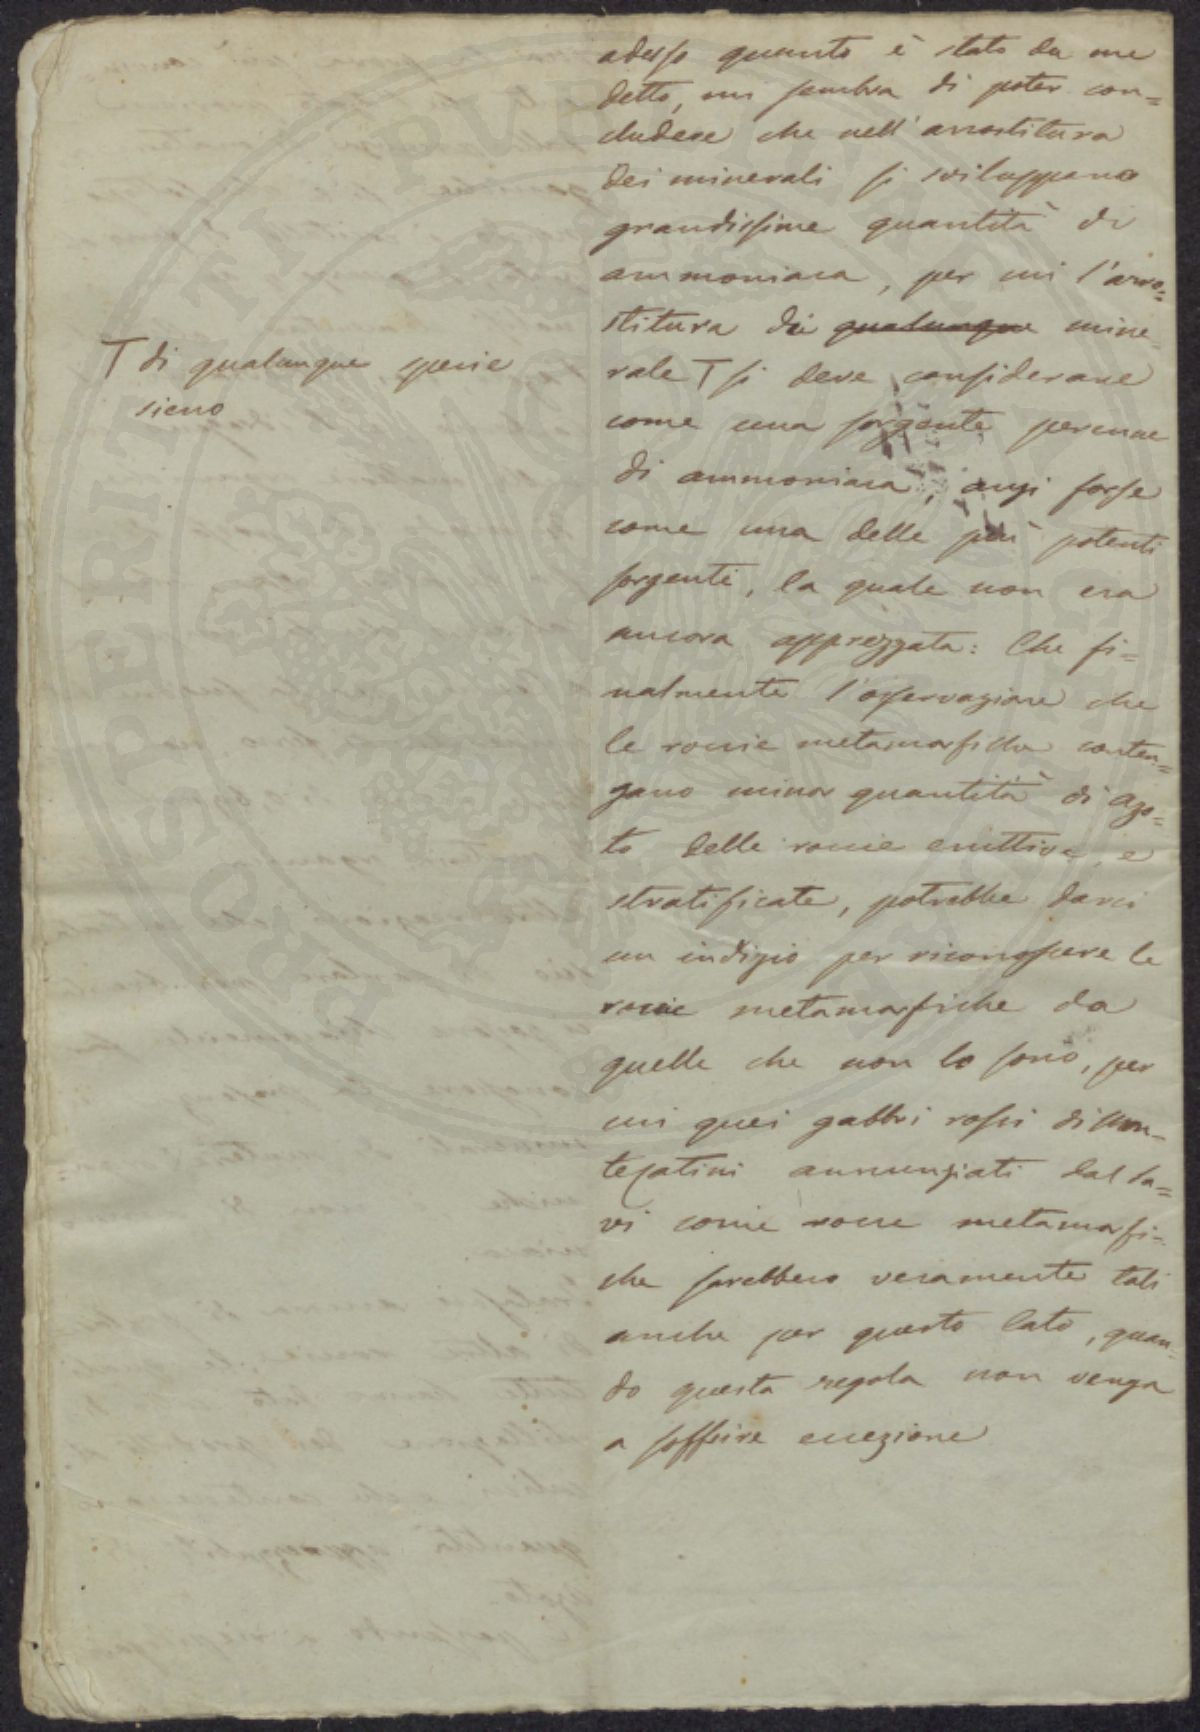 adesso quanto è stato da me
detto, mi sembra di poter con=
cludere che nell'arrostitura
dei minerali si sviluppano
grandissime quantità di
ammoniaca, per cui l'arro=
stitura di qualunque mine
rale T si deve considerare
come una sorgente perenne
di ammoniaca, anzi forse
come una delle più potenti
sorgenti, la quale non era
ancora apprezzata: Che fi=
nalmente l'osservazione che
le roccie metamorfiche conten=
gano minor quantità di azo=
to delle roccie eruttive, e
stratificate, potrebbe darci
un indizio per riconoscere le
roccie metamorfiche da
quelle che non lo sono, per
cui quei gabbri rossi di Mon=
tecatini annunziati dal Sa=
vi come rocce metamorfi=
che sarebbero veramente tali
anche per questo lato, quan=
do questa regola non venga
a soffrire eccezione
T di qualunque specie
sieno
PROSPERITATI PVBLICAE